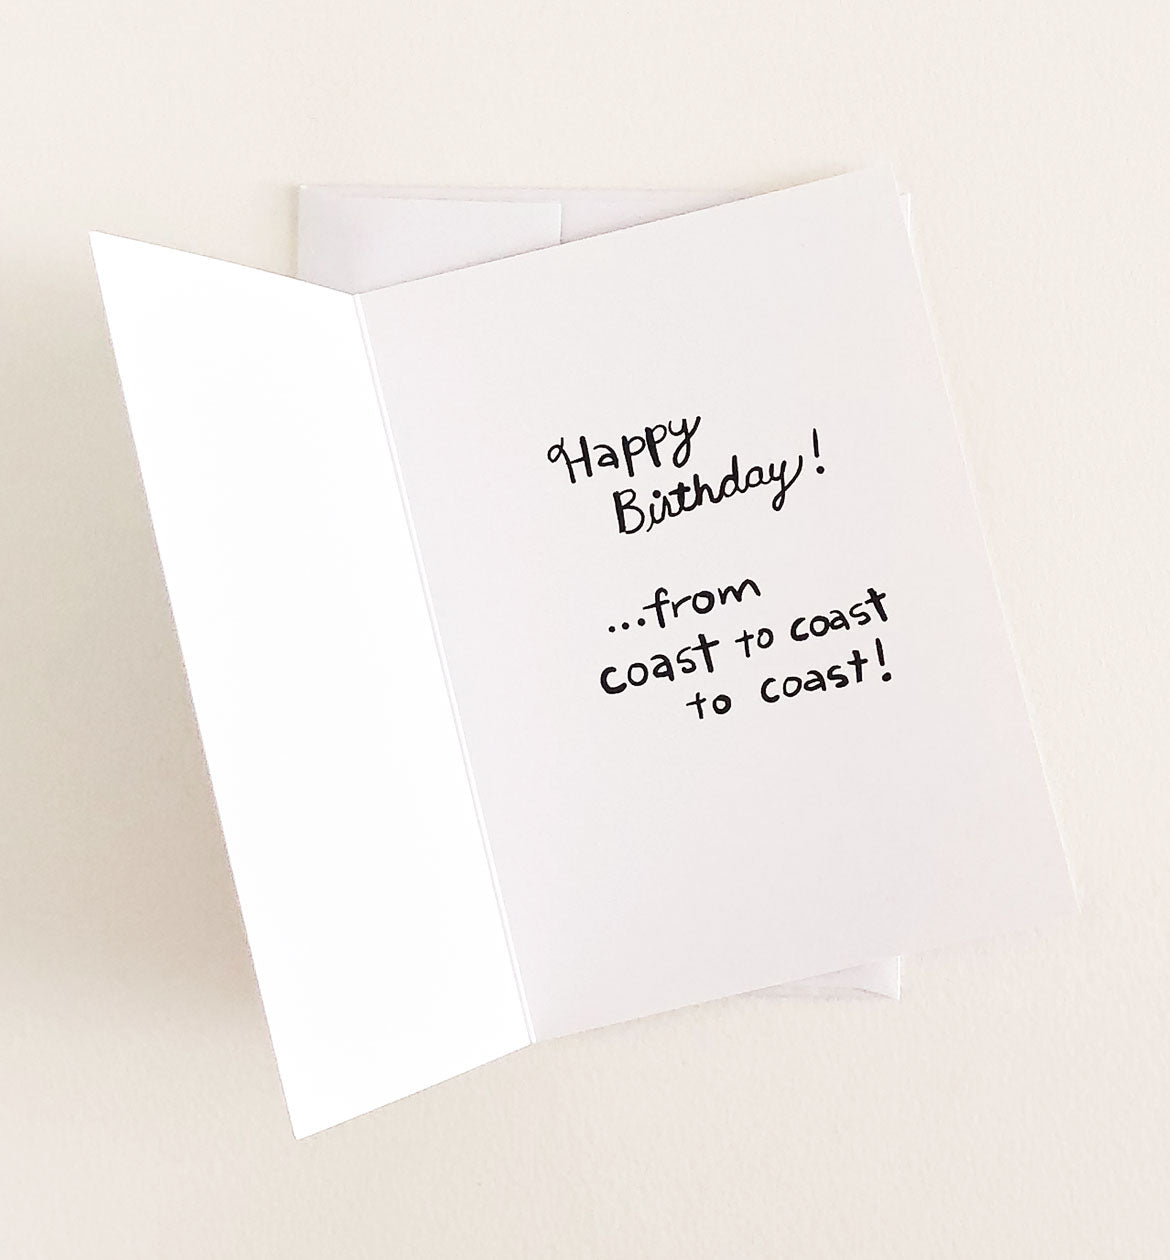 Happy
Birthday!
...from
coast to coast
to coast!